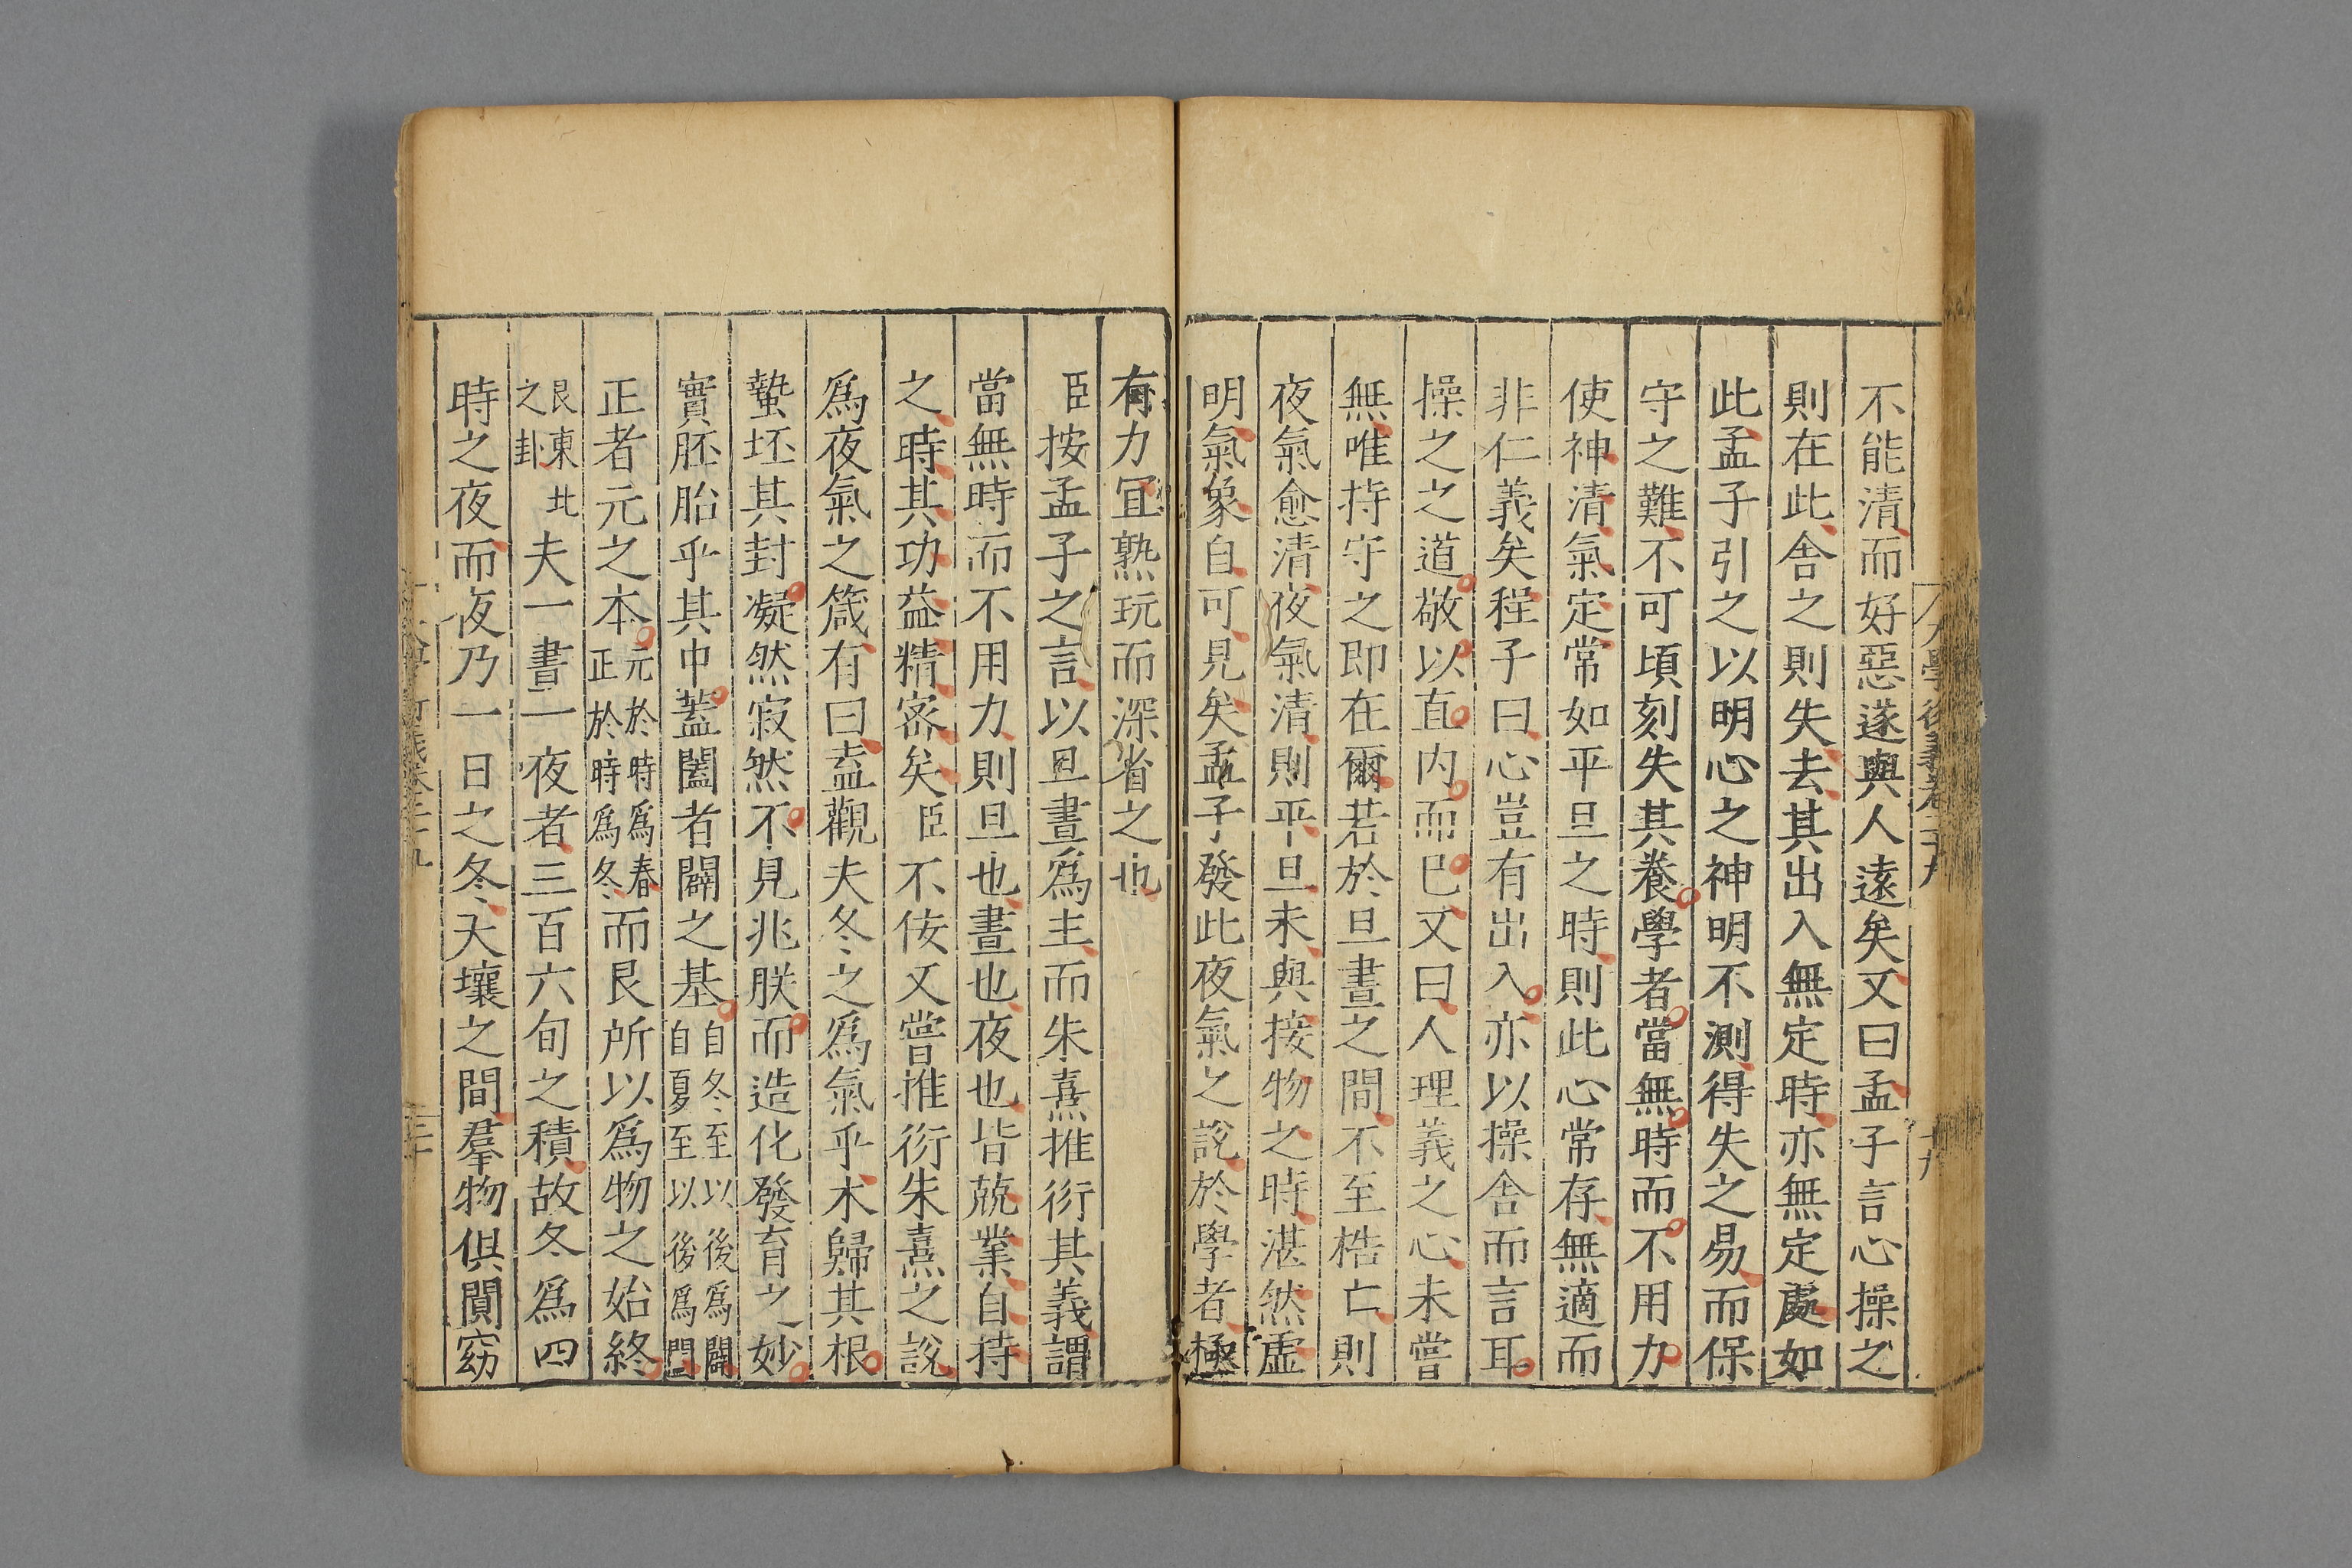 不能清而好惡遂與人遠矣又曰孟子言心操之
則在此舍之則失去其出入無定時亦無定處如
此孟子引之以明心之神明不測得失之易而保
守之難不可頃刻失其養學者當無時而不用力
使神清氣定常如平旦之時則此心常存無適而
非仁義矣程子曰心豈有出入亦以操舍而言耳
操之之道敬以直内而已又曰人理義之心未嘗
無唯持守之即在爾若於旦晝之間不至梏亡則
夜氣愈清夜氣清則平旦未與接物之時湛然虛
明氣象自可見矣孟子發此夜氣之說於學者極
有力宜熟玩而深省之也
臣按孟子之言以旦晝爲主而朱熹推衍其義謂
當無時而不用力則旦也晝也夜也皆兢業自持
之時其功益精密矣臣不佞又嘗推衍朱熹之說
爲夜氣之箴有曰盍觀夫冬之爲氣乎木歸其根
蟄坯其封凝然寂然不見兆朕而造化發育之妙
實胚胎乎其中蓋闔者闢之基自冬至以後爲闢自夏至以後爲闔
正者元之本元於時爲春正於時爲冬而艮所以爲物之始終
艮東北之卦夫一晝一夜者三百六旬之積故冬爲四
時之夜而夜乃一日之冬天壤之間羣物俱闃窈